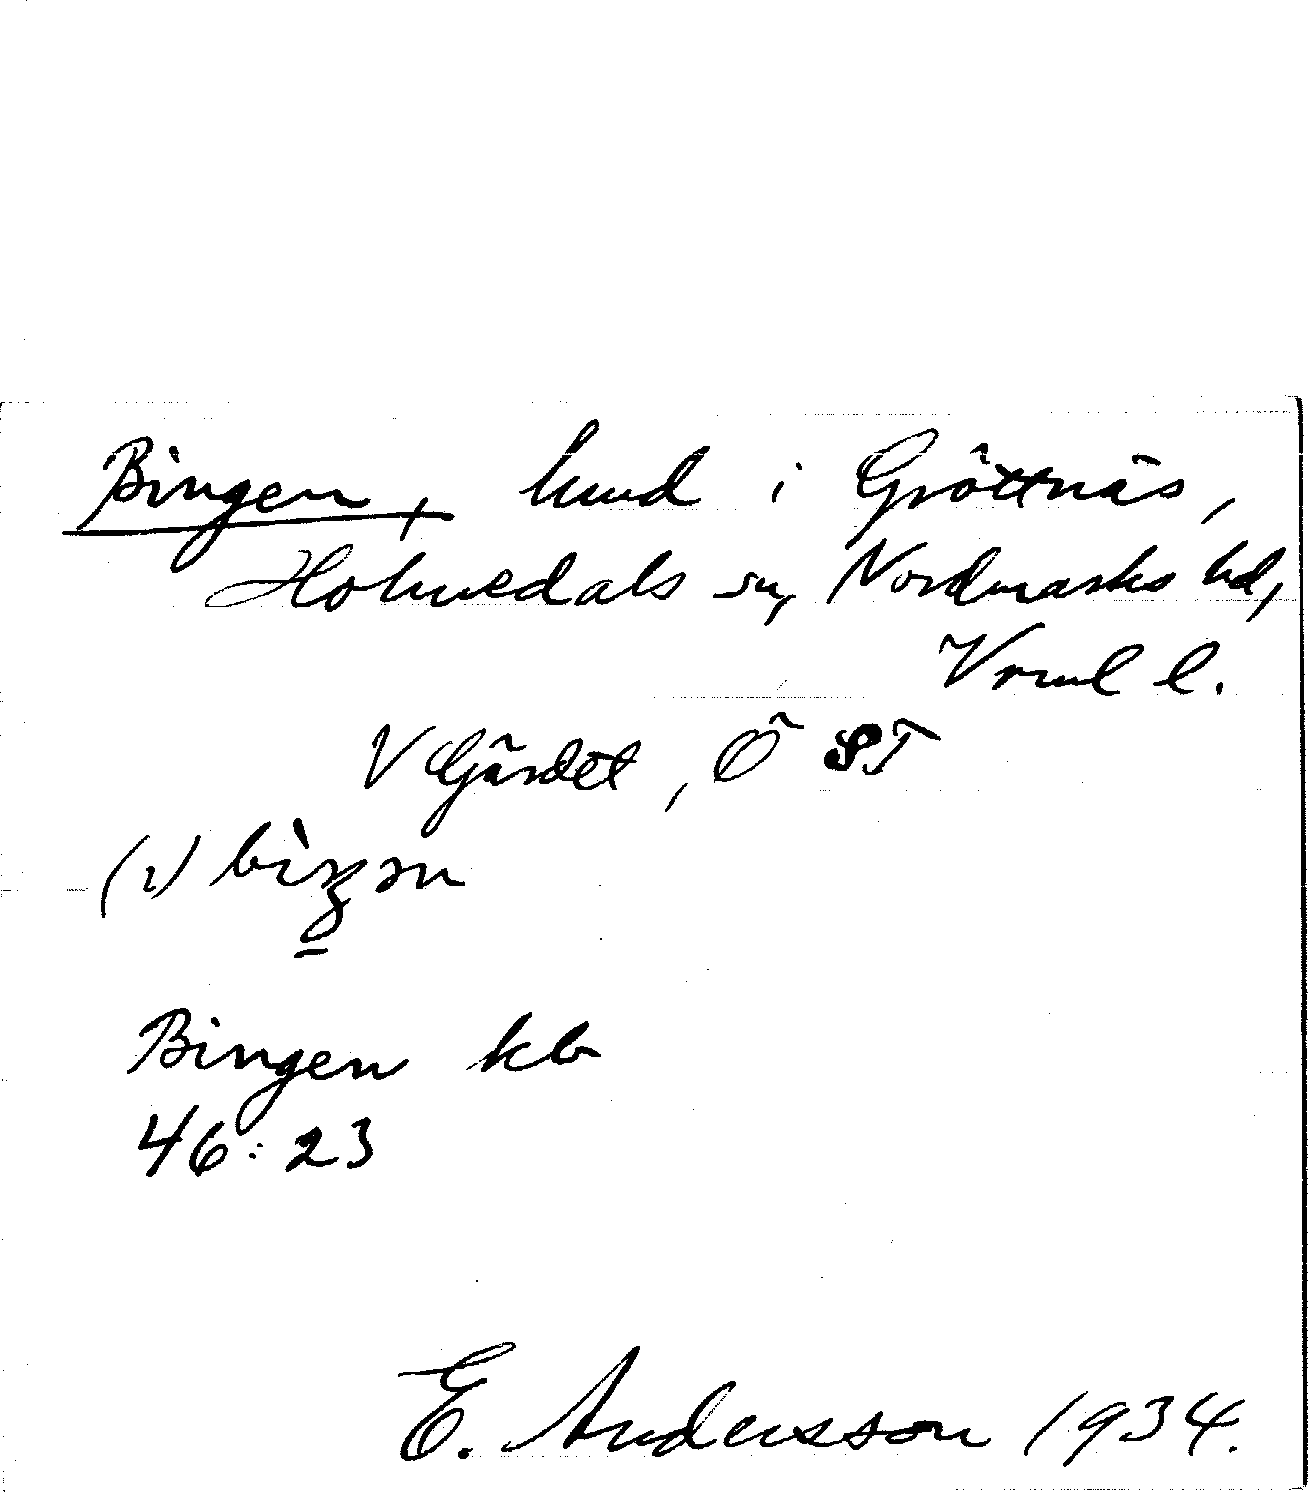 Bingen, lund i Gröttnäs,
Holmedals sn, Nordmarks hd,
Vrml l.
V Gärdet, Ö ST
(1) bìŋən
Bingen kb
46:23
E. Andersson 1934.